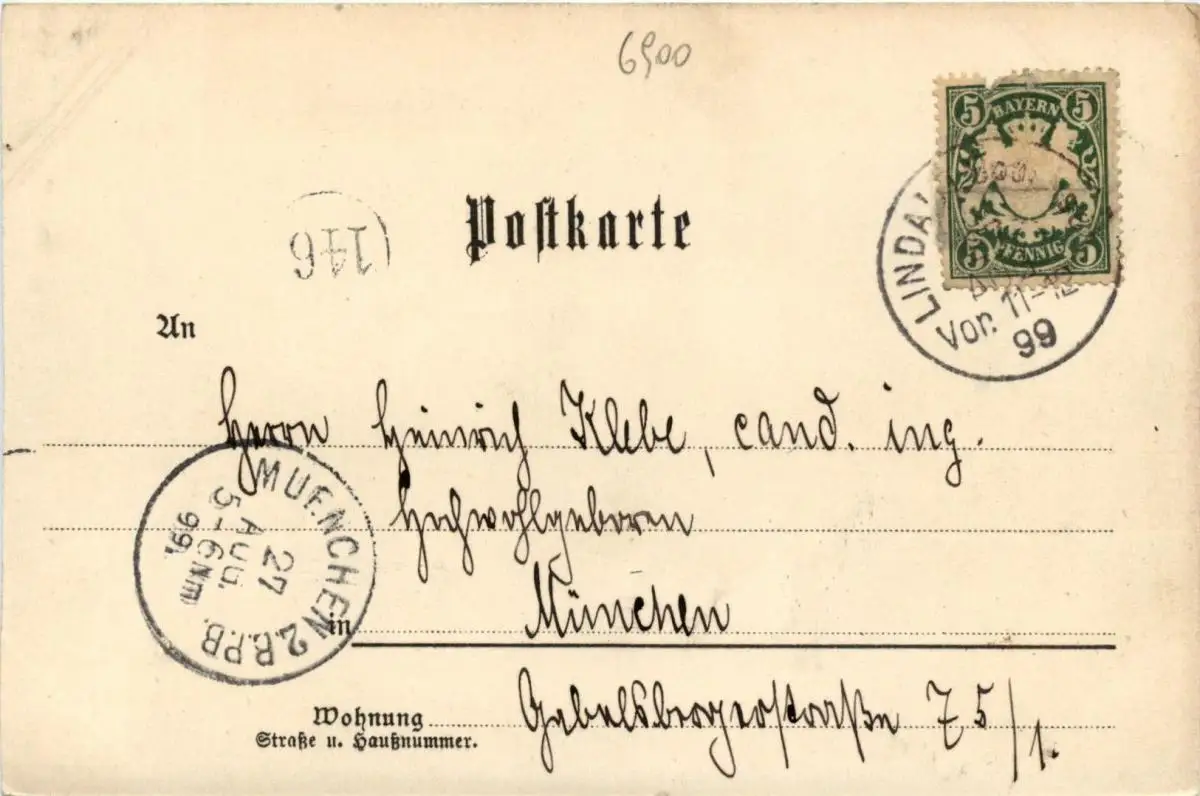 6900
5 BAYERN 5
5 PFENNIG 5
LINDAU
Vor. 11-12
99
Postkarte
146
An
Herrn Heinrich Klebe, cand. ing.
Hochwohlgeboren
in München
MUENCHEN 2.B.P.B.
27
AUG.
5-6 Nm.
99.
Wohnung Gabelsbergerstraße 75/1.
Straße u. Haußnummer.